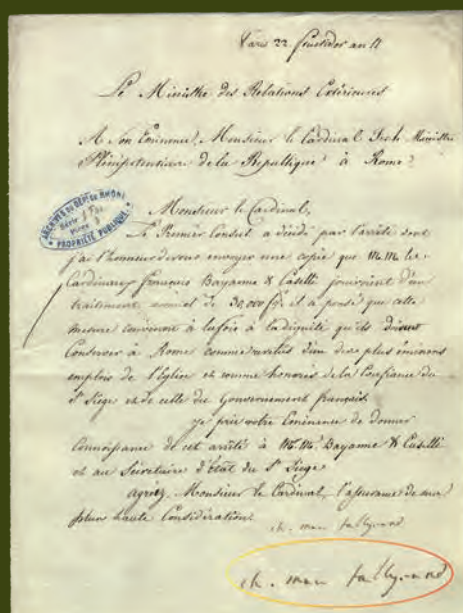 Paris 22 fructidor an 11
Le Ministre des Relations Extérieures
A Son Eminence, Monsieur le Cardinal Fesch Ministre
Plénipotentiaire de la République à Rome.
ARCHIVES DU DEPT DU RHÔNE
Série
PROPRIÉTÉ PUBLIQUE
Monsieur le Cardinal,
Le Premier Consul a décidé par l'arrêté dont
j'ai l'honneur de vous envoyer une copie que M.M. les
Cardinaux français Bayanne & Caselli jouiroient d'un
traitement annuel de 30,000 f. il a pensé que cette
mesure convenoit à la fois à la dignité qu'ils doivent
Conserver à Rome comme revêtus d'un des plus éminens
emplois de l'Eglise et comme honorés de la Confiance du
St Siège et de celle du Gouvernement français.
je prie votre Eminence de donner
connoissance de cet arrêté à MM. Bayanne & Caselli
et au Secrétaire d'état du St Siège.
agréez, Monsieur le Cardinal, l'assurance de ma
plus haute Considération
ch. mau talleyrand
ch. mau talleyrand